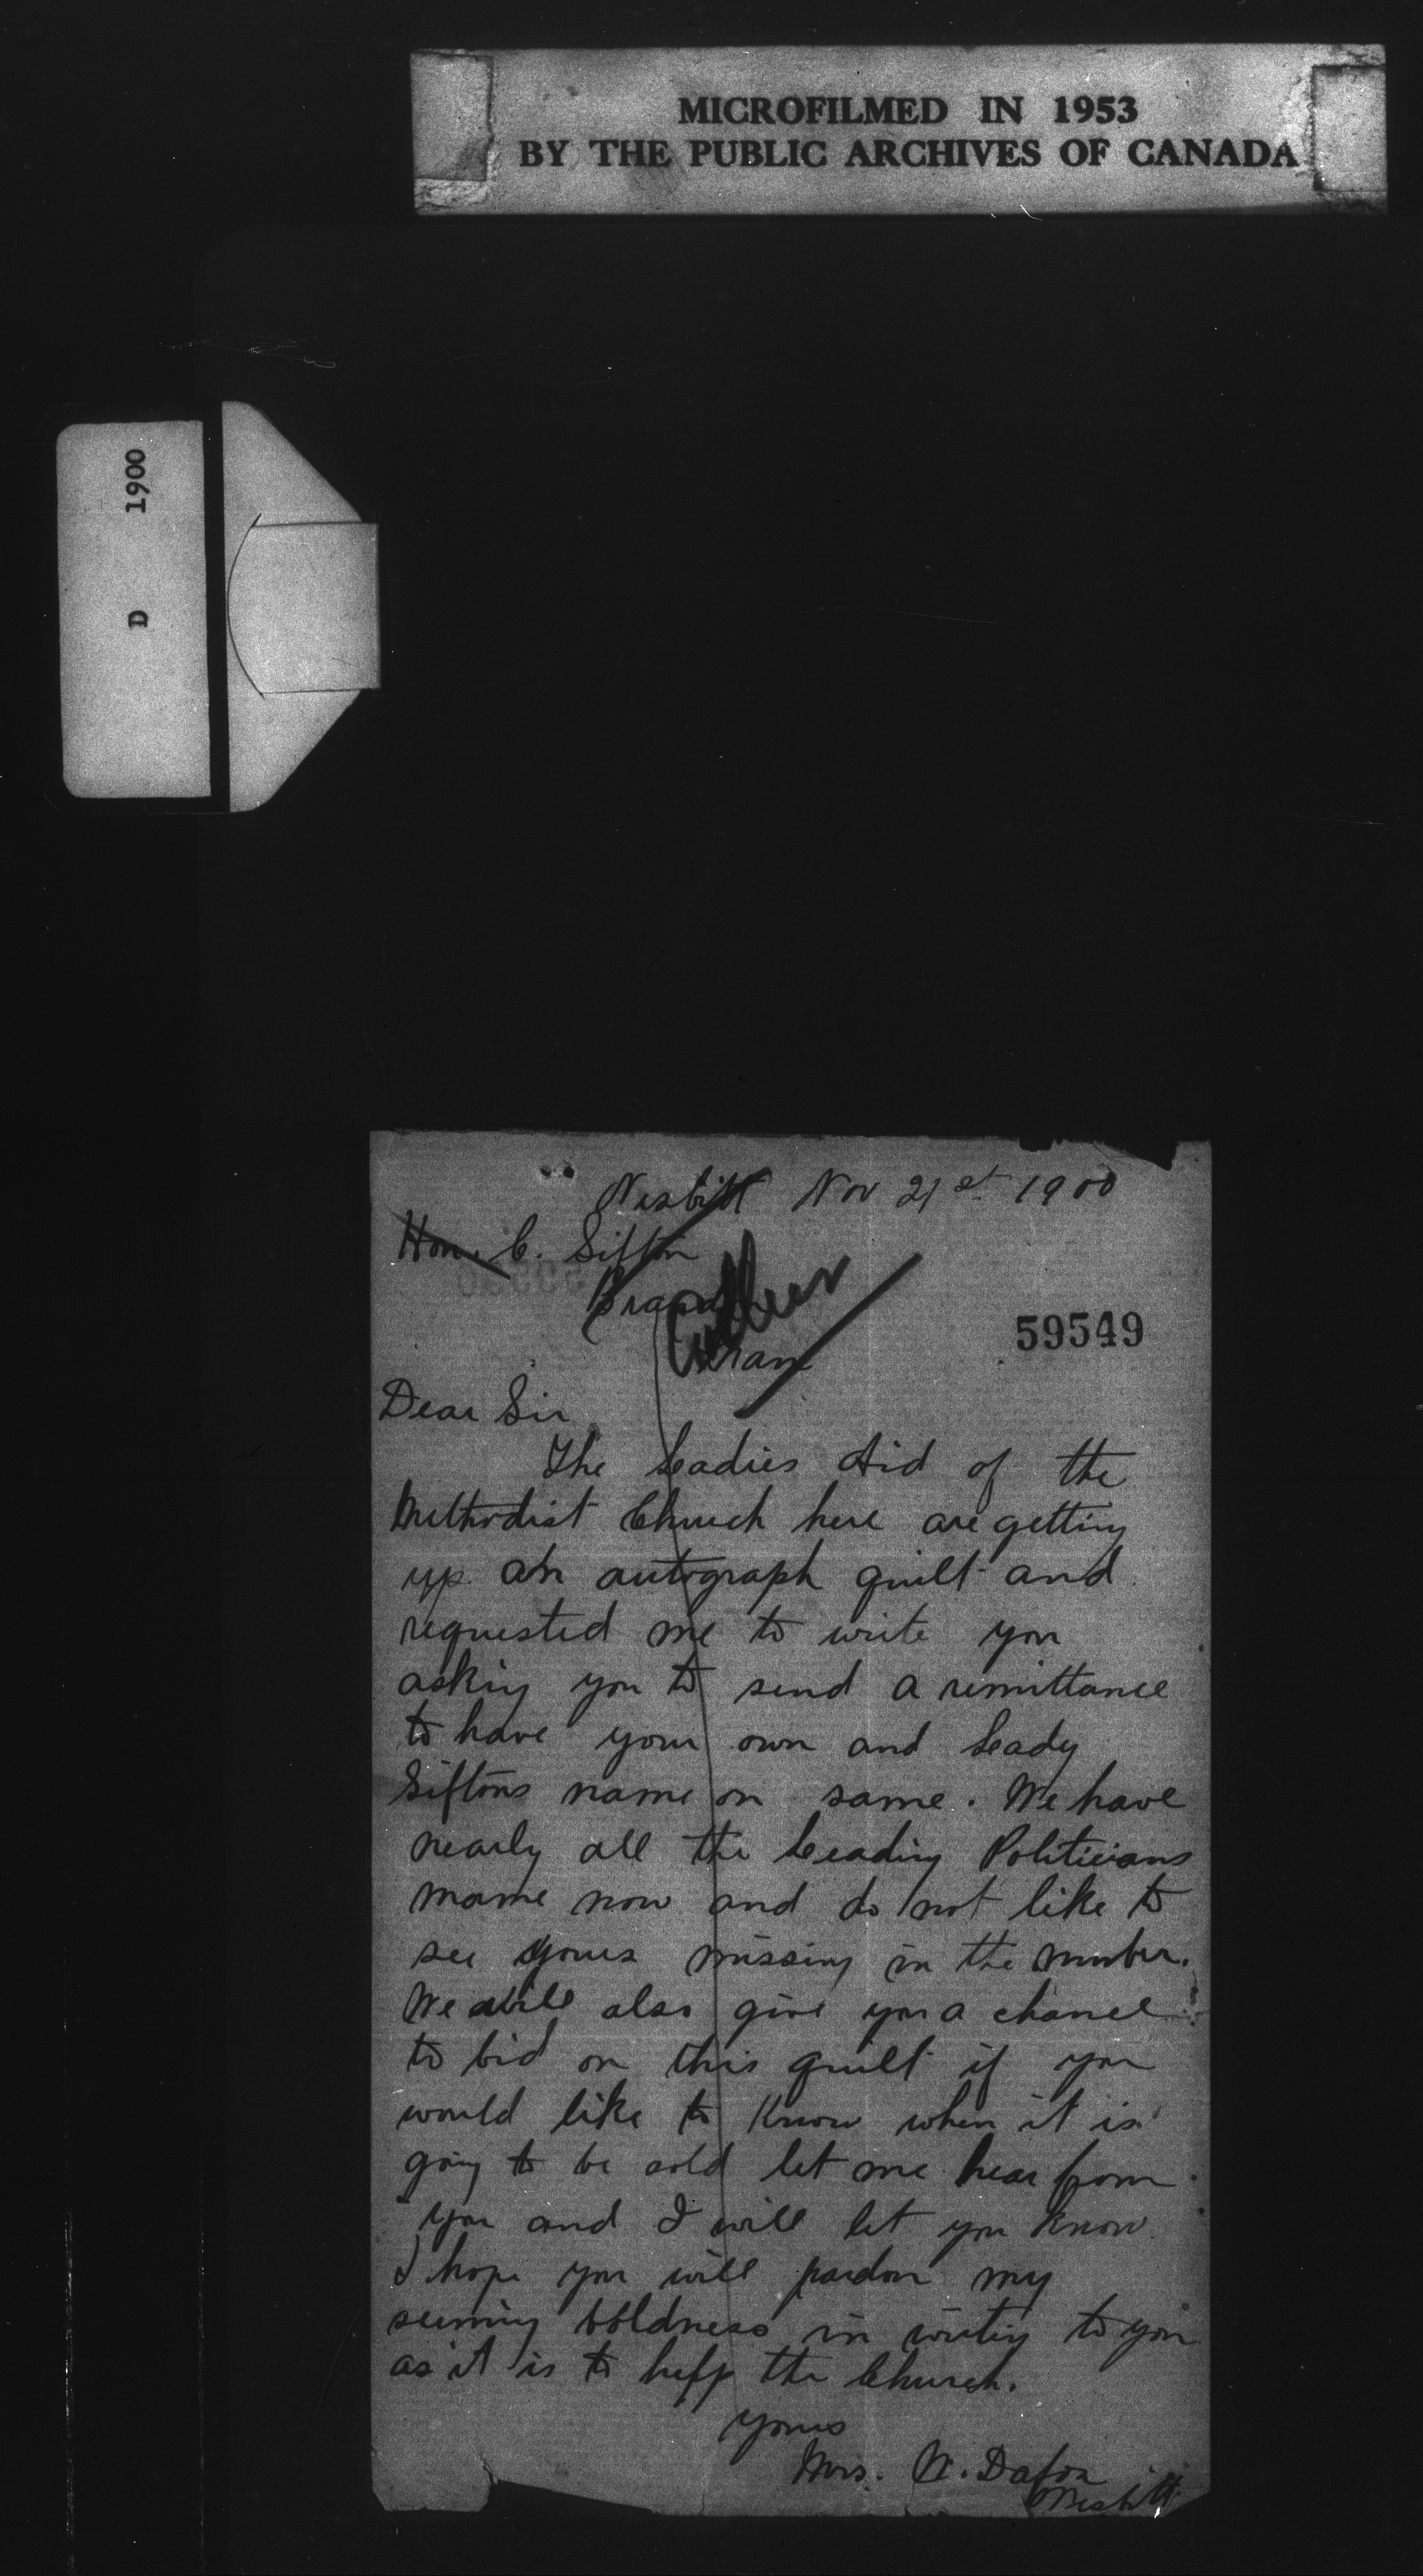 MICROFILMED IN 1953
BY THE PUBLIC ARCHIVES OF CANADA
D 1900
Nesbitt Nov 21st 1900
Hon. C. Sifton
Brandon
Man
59549
Dear Sir
The Ladies Aid of the
Methodist Church here are getting
up an autograph quilt and
requested me to write you
asking you to send a remittance
to have your own and Lady
Siftons name on same. We have
nearly all the Leading Politicians
name now and do not like to
see yours missing in the number.
We will also give you a chance
to bid on this quilt if you
would like to know when it is
going to be sold let me hear from
you and I will let you know
I hope you will pardon my
seeming boldness in writing to you
as it is to help the Church.
Yours
Mrs. W. Dafoe
Nesbitt